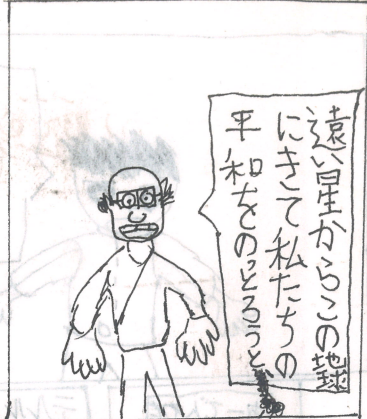 遠い星からこの地球
にきて私たちの
平和をのっとろうと